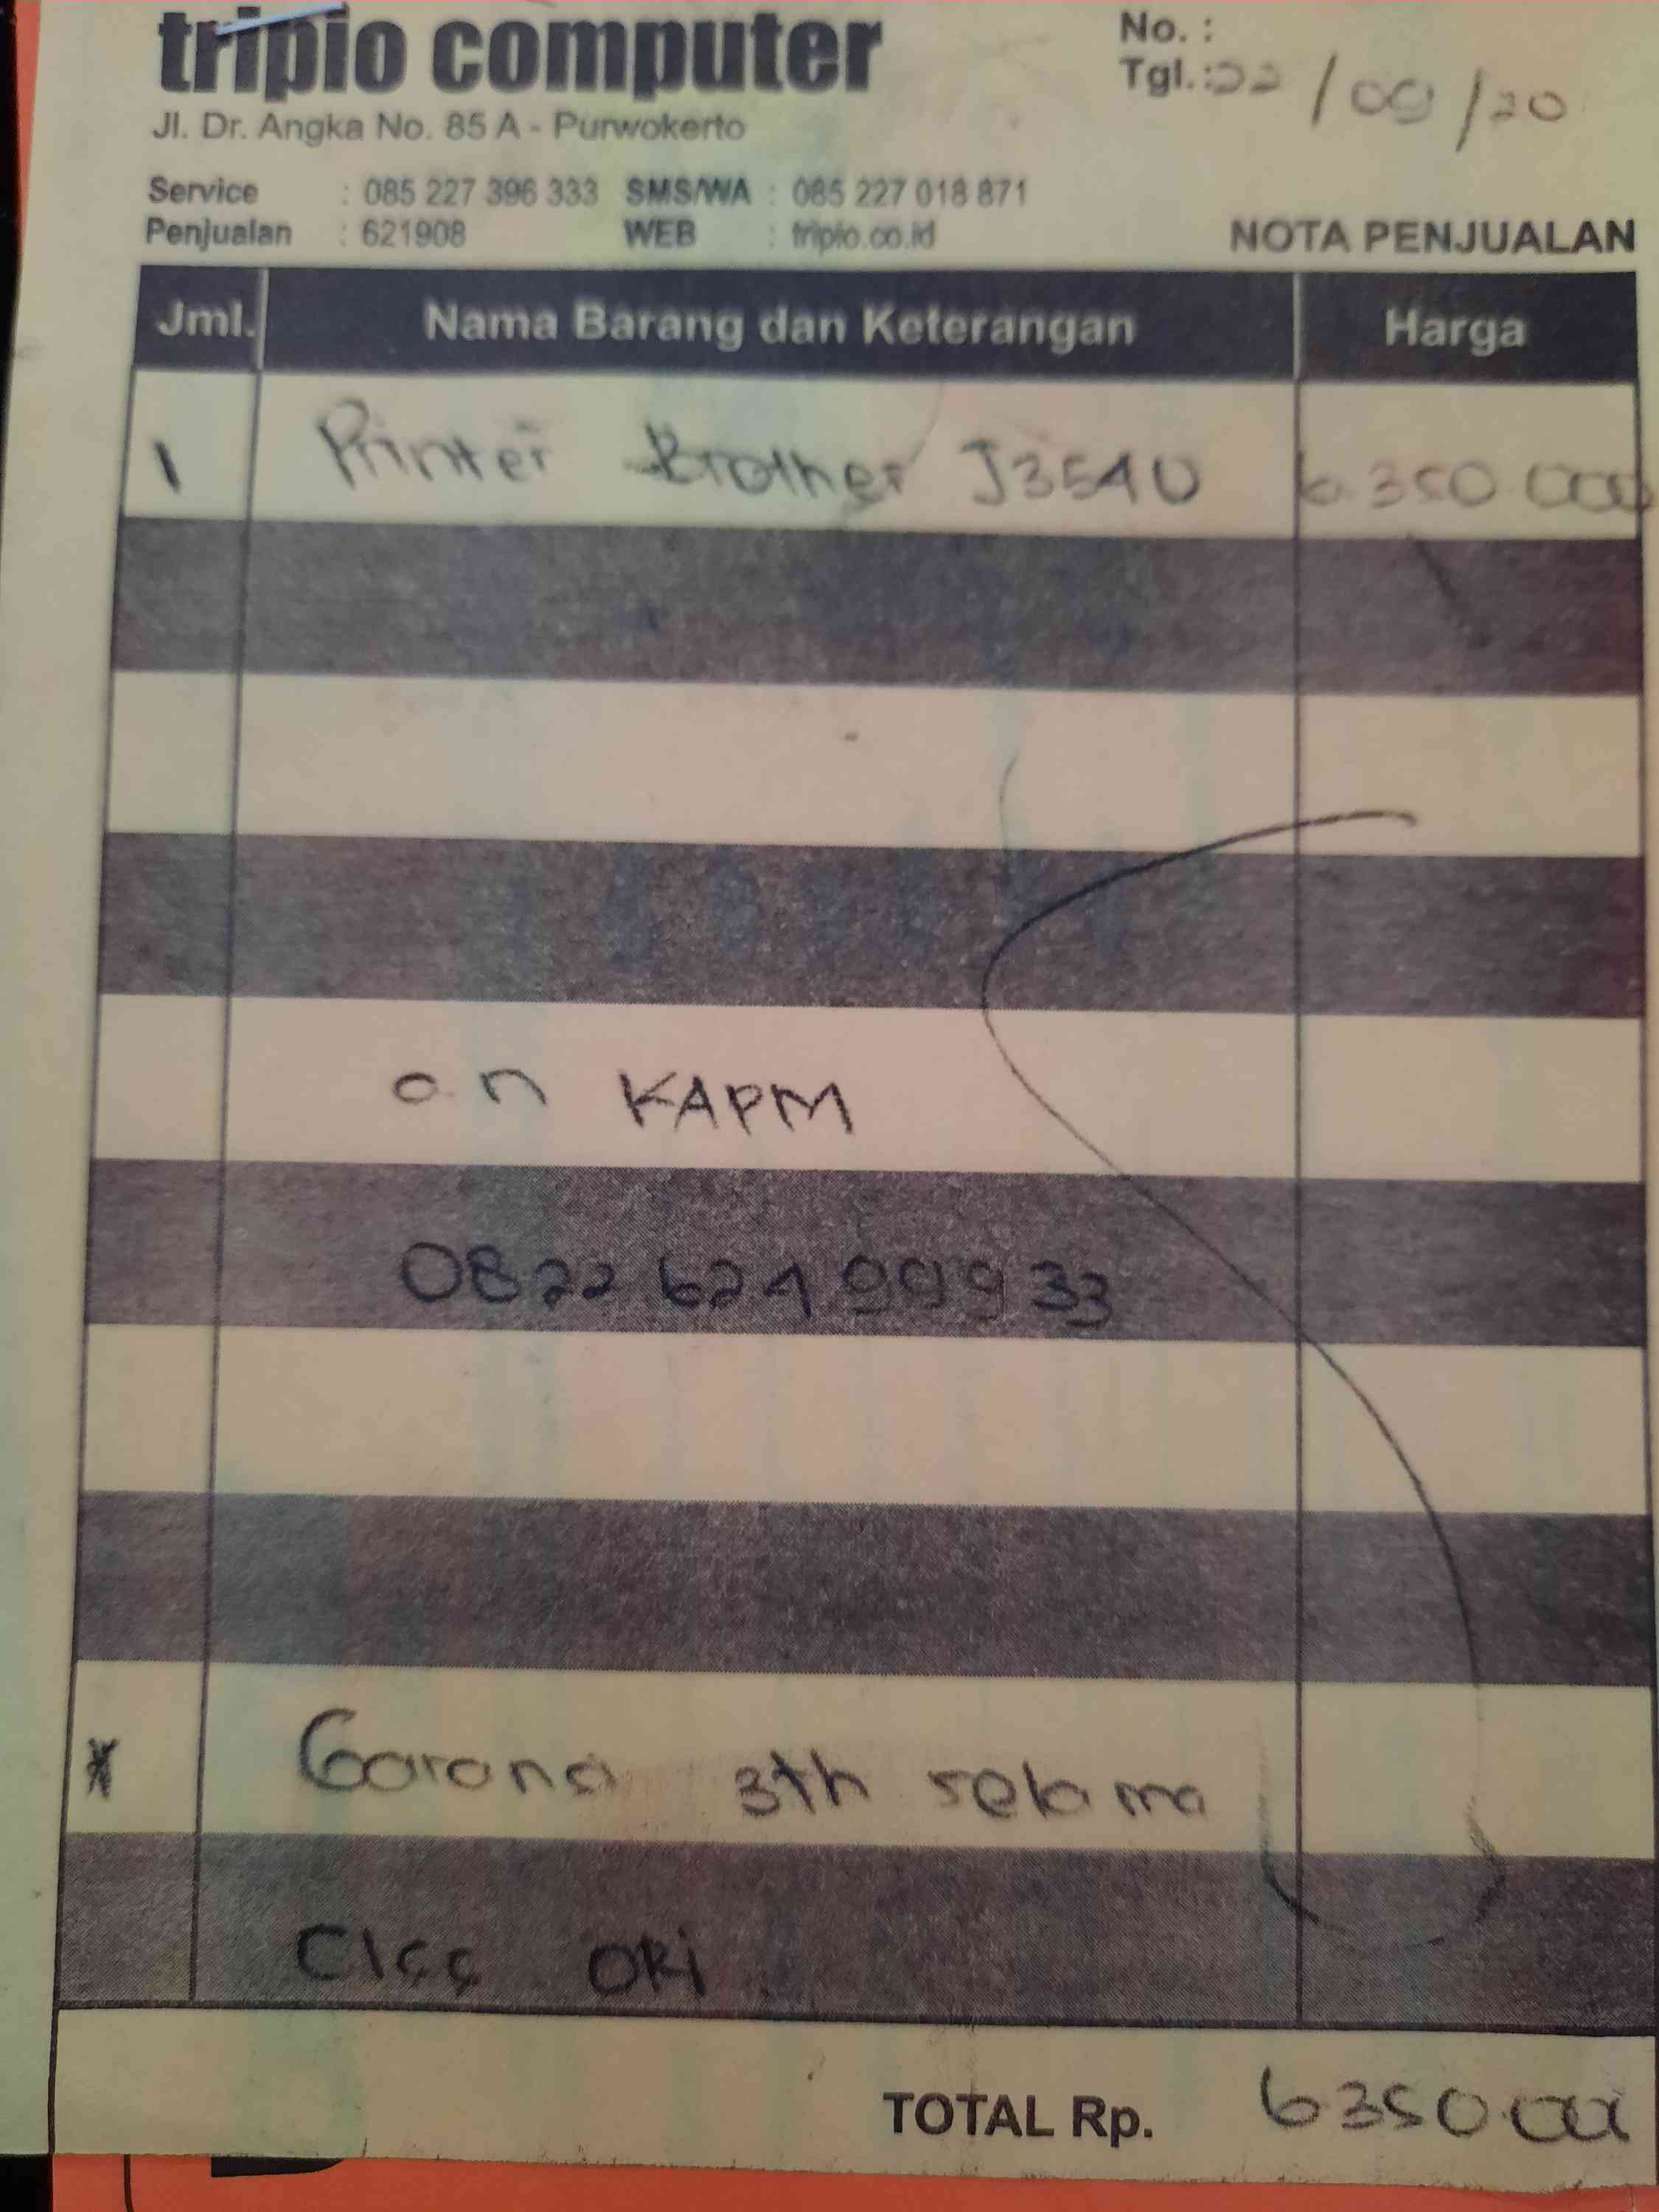 tripio computer
Jl. Dr. Angka No. 85 A - Purwokerto
No. :
Tgl. : 22/09/20
Service : 085 227 396 333 SMS/WA : 085 227 018 871
Penjualan : 621908 WEB : tripio.co.id
NOTA PENJUALAN
Jml. Nama Barang dan Keterangan Harga
1 Printer Brother J3540 6.350.000
a.n KAPM
0822 624 999 33
* Garansi 3th selama
CISS ORI
TOTAL Rp. 6350.000